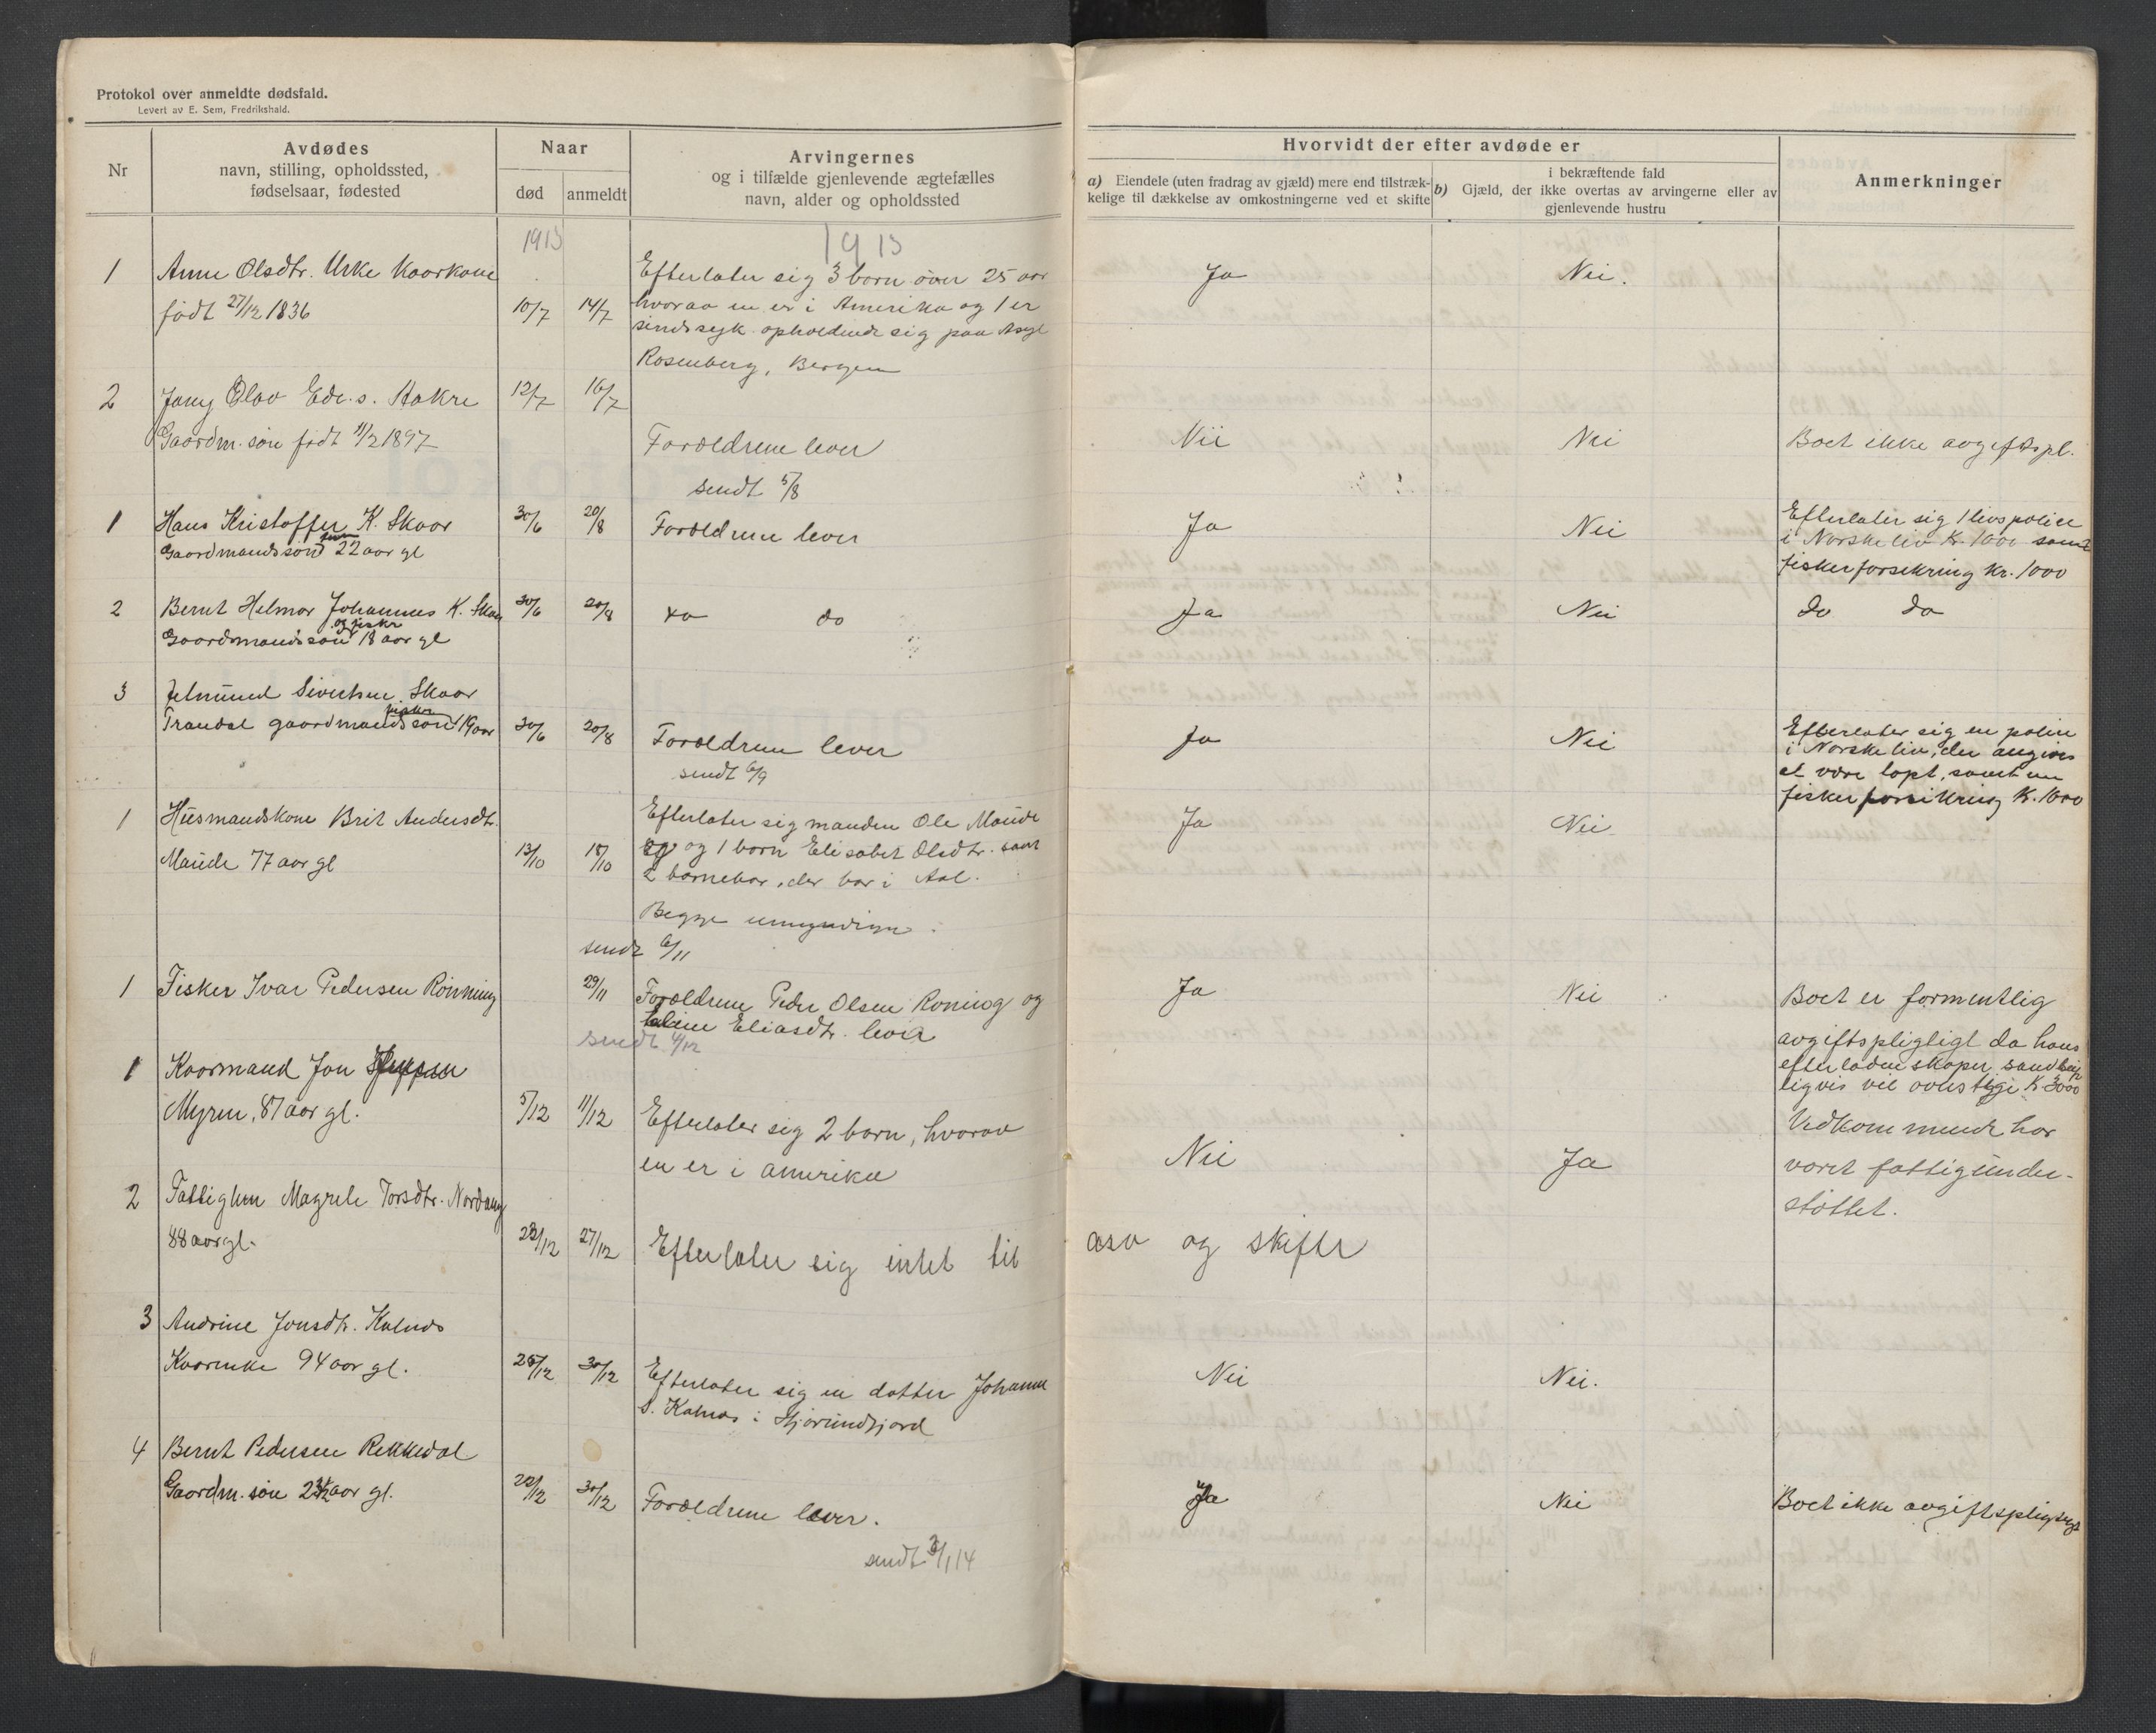 Protokol over anmeldte dødsfald.
Levert av E. Sem, Fredrikshald.
Nr
Avdødes
navn, stilling, opholdssted,
fødselsaar, fødested
Naar
død
anmeldt
Arvingernes
og i tilfælde gjenlevende ægtefælles
navn, alder og opholdssted
Hvorvidt der efter avdøde er
a) Eiendele (uten fradrag av gjæld) mere end tilstræk-
kelige til dækkelse av omkostningerne ved et skifte
i bekræftende fald
b) Gjæld, der ikke overtas av arvingerne eller av
gjenlevende hustru
Anmerkninger
1913
1913
1 Anne Olsdtr. Urke Kaarkone
født 27/12 1836 10/7 14/7
Efterlater sig 3 barn over 25 aar
hvorav en er i Amerika og 1 er
sindssyk opholdende sig paa Asyl
Rosenberg, Bergen
Ja Nei.
2 Olav Edv.s. Stakre 12/7 16/7
Gaardm. søn født 11/2 1897
Forældrene lever
sendt 5/8
Nei Nei Boet ikke avgiftspl.
1 Hans Kristoffer K. Skaar 30/6 20/8 Forældrene lever
Gaardmandssøn 22 aar gl
Ja Nei
Efterlater sig 1 livspolice
i Norske liv Kr. 1000 samt
fiskerforsikring kr. 1000
2 Bernt Helmar Johannes K. Skaar 30/6 20/8 do
og fisker
Gaardmandssøn 18 aar gl
Ja Nei do do
3 Sivertsen Skaar
fisker
Trandal gaardmandssøn 19 aar 30/6 20/8
Forældrene lever
sendt 6/9
Ja Nei
Efterlater sig en police
i Norske liv, der angives
at være tapt, samt en
fisker forsikring K. 1000
1 Husmandskone Brit Andersdtr.
Maude 77 aar gl 13/10 18/10
Efterlater sig manden Ole Maude
og 1 barn Elisabet Olsdtr. samt
2 barnebar, der bor i Aal.
Begge umyndige.
sendt 6/11
Ja Nei
1 Fisker Ivar Pedersen Rönning 29/11
Forældrene Peder Olsen Roning og
Eliasdtr. lever
sendt 4/12
Ja Nei
Boet er formentlig
avgiftspligtigt da hans
efterladenskaper sandsyn
ligvis vil overstige K. 3000
1 Kaarmand Jon
Myren, 87 aar gl. 5/12 11/12
Efterlater sig 2 barn, hvorav
en er i amerika
Nei Ja
Vedkommende har
været fattigunder-
støttet.
2 Fattiglem Magrete Torsdtr. Nordang
88 aar gl. 23/12 27/12 Efterlater sig intet til arv og skifte
3 Andrine Jonsdtr. Kalnæs
Kaarenke 94 aar gl. 25/12 30/12
Efterlater sig en datter Johanne
S. Kalnæs i Hjørundfjord
Nei Nei.
4 Bernt Pedersen Rekkedal
Gaardm. søn aar gl. 22/12 30/12
Forældrene lever.
sendt 3/1 14
Ja Nei Boet ikke avgiftspligtigt